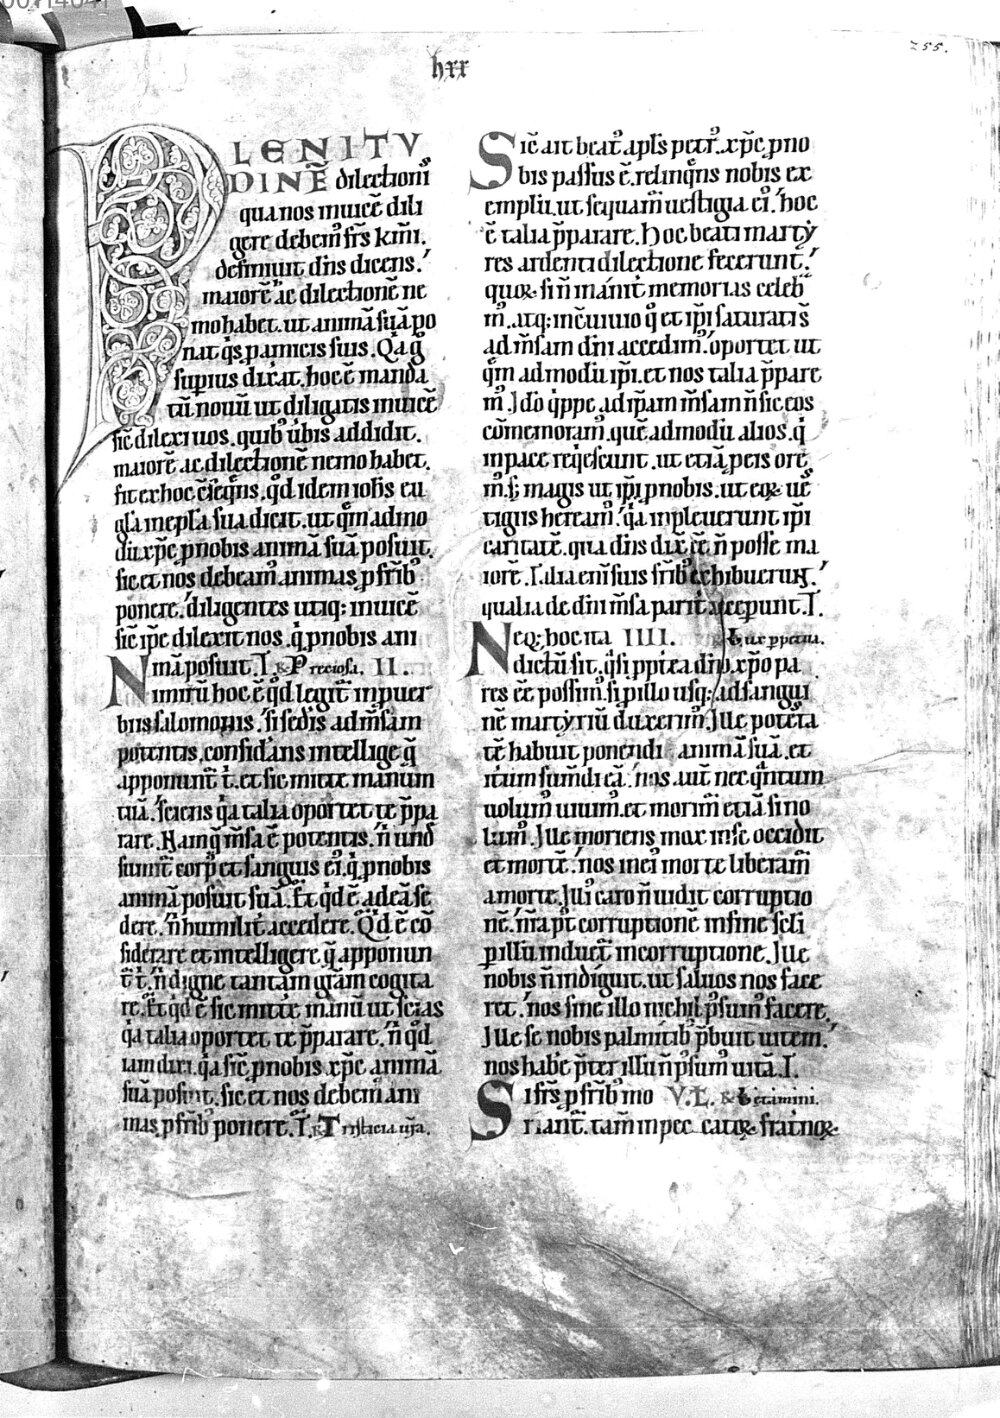 hxx
255.
PLENITV
DINE᷃ dilectioniſ
qua nos inuice᷃ dili
gere debem᷒ fr̅s km̅i.
definiuit dn̅s dicens.
maiore᷃ ac dilectione᷃ ne
mo habet. ut anima᷃ ſua᷃ po
nat q̇s p amicis ſuis. Qa᷃ g̅
ſupius dixat. hoc e᷃ manda
tu᷃ nouu᷃ ut diligatis inuice᷃
ſic᷃ dilexi uos. quib᷒ u̅bis addidit.
maiore᷃ ac dilectione᷃ nemo habet.
fit ex hoc c̅ſeq̅ns. qd̅ idem ioh̅s eu
gl̅a in epl̅a ſua dicit. ut q̅madmo
du᷃ xp̅c p nobis anima᷃ ſua᷃ poſuit.
ſic et nos debeam᷒ animas p fr̅ib᷒
ponere. diligentes utiq; inuice᷃
ſic᷃ ip̅e dilexit nos. q̇ p nobis ani
ma᷃ poſuit. I. ꝶ Precioſa. II.
Nimiru᷃ hoc e᷃ qd̅ legit᷒ in puer
biis ſalomonis. ſi ſedis ad m̅ſam
potentis. conſiderans intellige q̅
apponunt᷒ t. et ſic mitte manum
tua᷃. ſciens q̇a talia oportet te p̅pa
rare. Nam q̅ m̅ſa e᷃ potentis. n̅ und̅
ſumit᷒ corp᷒ et ſanguis ei᷒. q̇ p nobis
anima᷃ poſuit ſua᷃. Et qd̅ e᷃ ad ea᷃ ſe
dere. n̅ humilit᷒ accedere. Qd̅ e᷃ co᷃
ſiderare et intelligere q̅ apponun
t᷒ t. n̅ digne tantam gr̅am cogita
re. Et qd̅ e᷃ ſic mitte manu᷃ ut ſcias
q̇a talia oportet te p̅parare. n̅ qd̅
iam dixi. q̇a ſic᷃ p nobis xp̅c anima᷃
ſua᷃ poſuit. ſic et nos debem᷒ ani
mas p fr̅ib᷒ ponere. I. ꝶ Triſticia ur̅a.
Sic᷃ ait beat᷒ apl̅s petr᷒. xp̅c p no
bis paſſus e᷃. relinq̅ns nobis ex
emplu᷃. ut ſequam᷒ ueſtigia ei᷒. hoc
e᷃ talia p̅parare. Hoc beati marty
res ardenti dilectione fecerunt.
quoꝝ ſi n̅ inanit᷒ memorias celeb᷒
m᷒. atq; in c̅uiuio q᷒ et ip̅i ſaturati s̅
ad m̅ſam dn̅i accedim᷒. oportet ut
q̅m ad modu᷃ ip̅i. et nos talia p̅pare
m᷒. Ido q̇ppe ad ip̅am m̅ſam n̅ ſic eos
co᷃memoram᷒. que᷃admodu᷃ alios. q̇
in pace req̇eſcunt. ut etia᷃ p eis ore
m᷒. ſ; magis ut ip̅i p nobis. ut eoꝝ ue᷃
tigiis hereamꝰ. q̇a inpleuerunt ip̅i
caritate᷃. qua dn̅s dix᷒ ee᷃ n̅ poſſe ma
iore᷃. Talia eni᷃ ſuis fr̅ib᷒ exhibuerꝯ.
qualia de dn̅i m̅ſa parit᷒ accepunt. I.
Neq; hoc ita IIII. ꝶ Lux ppetua.
dictu᷃ ſit. q̇ſi ppt̅ea dn̅o xp̅o pa
res ee᷃ poſſim᷒. ſi p illo uſq; ad ſangui
ne᷃ martyriu᷃ duxerim᷒. Ille poteſta
te᷃ habuit ponendi anima᷃ ſua᷃. et
it̅um ſum̅di ea᷃. nos aut᷒ nec q̅ntum
uolum᷒ uiuim᷒. et morim᷒ etia᷃ ſi no
lum᷒. Ille moriens mox in ſe occidit
et morte᷃. nos in ei᷒ morte liberam᷒
a morte. Illi᷒ caro n̅ uidit corruptio
ne᷃. nr̅a p᷒t corruptione᷃ in fine ſcl̅i
p illu᷃ induet᷒ incorruptione. Ille
nobis n̅ indiguit. ut ſaluos nos face
ret. nos ſine illo nichil p᷒ſum᷒ facere.
Ille ſe nobis palmitib᷒ p̅buit uitem.
nos habe᷒ p̅ter illu᷃ n̅ p᷒ſum᷒ uita᷃. I.
Si fr̅s p fr̅ib᷒ mo V. L. ꝶ Letamini.
riant᷒. tam᷒ in pec catoꝝ frat᷒noꝝ